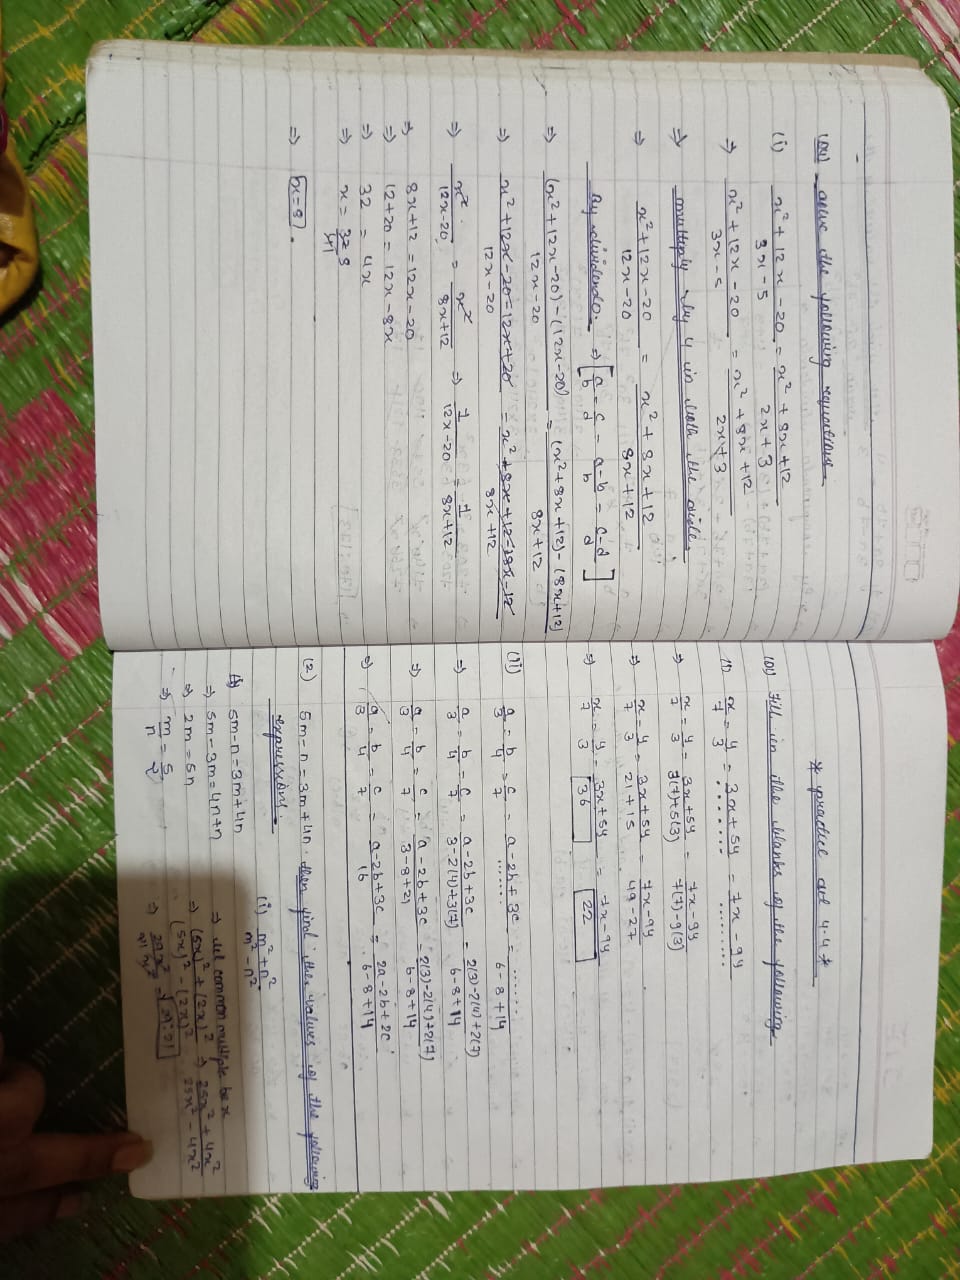 solve the following equations
(i) x² + 12x - 20 / 3x - 5 = x² + 8x + 12 / 2x + 3
⇒ x² + 12x - 20 / 3x - 5 = x² + 8x + 12 / 2x + 3
⇒ multiply by 4 in both the sides
⇒ x² + 12x - 20 / 12x - 20 = x² + 8x + 12 / 8x + 12
By dividendo. ⇒ [a/b = c/d = a-b/b = c-d/d]
⇒ (x² + 12x - 20) - (12x - 20) / 12x - 20 = (x² + 8x + 12) - (8x + 12) / 8x + 12
⇒ x² + 12x - 20 - 12x + 20 / 12x - 20 = x² + 8x + 12 - 8x - 12 / 8x + 12
⇒ x² / 12x - 20 = x² / 8x + 12 ⇒ 1 / 12x - 20 = 1 / 8x + 12
⇒ 8x + 12 = 12x - 20
⇒ 12 + 20 = 12x - 8x
⇒ 32 = 4x
⇒ x = 32 8 / 4 1
⇒ x = 8.
* practice set 4.4 *
Fill in the blanks of the following
(i) x/7 = y/3 = 3x + 5y / ....... = 7x - 9y / .......
⇒ x/7 = y/3 = 3x + 5y / 3(7) + 5(3) = 7x - 9y / 7(7) - 9(3)
⇒ x/7 = y/3 = 3x + 5y / 21 + 15 = 7x - 9y / 49 - 27
⇒ x/7 = y/3 = 3x + 5y / 36 = 7x - 9y / 22
(ii) a/3 = b/4 = c/7 = a - 2b + 3c / ....... = ....... / 6 - 8 + 14
⇒ a/3 = b/4 = c/7 = a - 2b + 3c / 3 - 2(4) + 3(7) = 2(3) - 2(4) + 2(7) / 6 - 8 + 14
⇒ a/3 = b/4 = c/7 = a - 2b + 3c / 3 - 8 + 21 = 2(3) - 2(4) + 2(7) / 6 - 8 + 14
⇒ a/3 = b/4 = c/7 = a - 2b + 3c / 16 = 2a - 2b + 2c / 6 - 8 + 14
(2) 5m - n = 3m + 4n. then find the values of the following
expressions.
(i) m² + n² / m² - n²
⇒ 5m - n = 3m + 4n
⇒ 5m - 3m = 4n + n
⇒ 2m = 5n
⇒ m/n = 5/2
⇒ let common multiple be x
⇒ (5x)² + (2x)² / (5x)² - (2x)² ⇒ 25x² + 4x² / 25x² - 4x²
⇒ 29x² / 21x² =